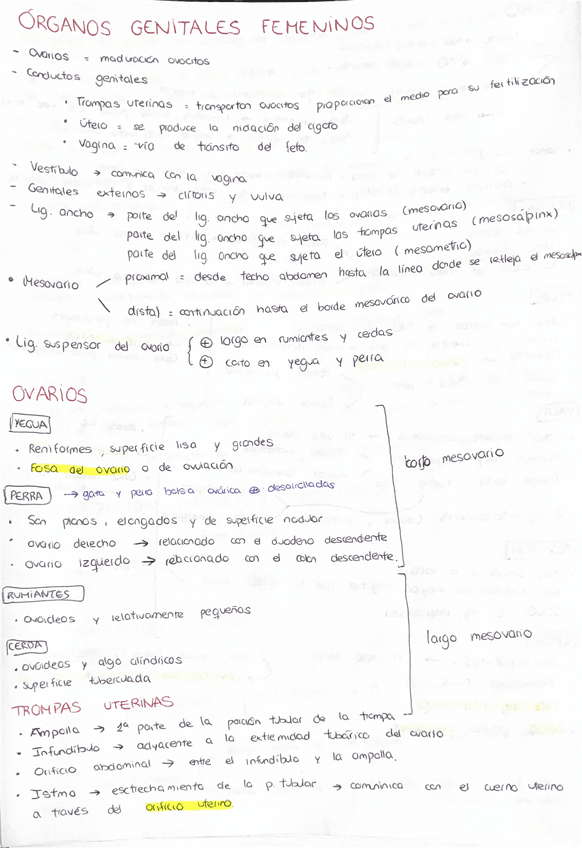 ÓRGANOS GENITALES FEMENINOS
- Ovarios = maduración ovocitos
- Conductos genitales
• Trompas uterinas = transportan ovocitos proporcionan el medio para su fertilización
• Útero = se produce la nidación del cigoto
• Vagina = vía de tránsito del feto.
- Vestíbulo → comunica con la vagina
- Genitales externos → clítoris y vulva
- Lig. ancho → parte del lig. ancho que sujeta los ovarios (mesovario)
parte del lig. ancho que sujeta las trompas uterinas (mesosálpinx)
parte del lig ancho que sujeta el útero (mesometrio)
• Mesovario proximal = desde techo abdomen hasta la línea donde se refleja el mesosálpinx
distal = continuación hasta el borde mesovárico del ovario
• Lig. suspensor del ovario { ⊕ largo en rumiantes y cerdas
⊕ corto en yegua y perra
OVARIOS
YEGUA
• Reniformes, superficie lisa y grandes
• Fosa del ovario o de ovulación
corto mesovario
PERRA → gata y perra bolsa ovárica ⊕ desarrolladas
• Son planos, elongados y de superficie nodular
• ovario derecho → relacionado con el duodeno descendente
• ovario izquierdo → relacionado con el colon descendente.
RUMIANTES
• ovoideos y relativamente pequeños
largo mesovario
CERDA
• ovoideos y algo cilíndricos
• superficie tuberculada
TROMPAS UTERINAS
• Ampolla → 1ª parte de la porción tubular de la trompa
• Infundíbulo → adyacente a la extremidad tubárica del ovario
• Orificio abdominal → entre el infundíbulo y la ampolla.
• Istmo → estrechamiento de la p. tubular → comunica con el cuerno uterino
a través del orificio uterino